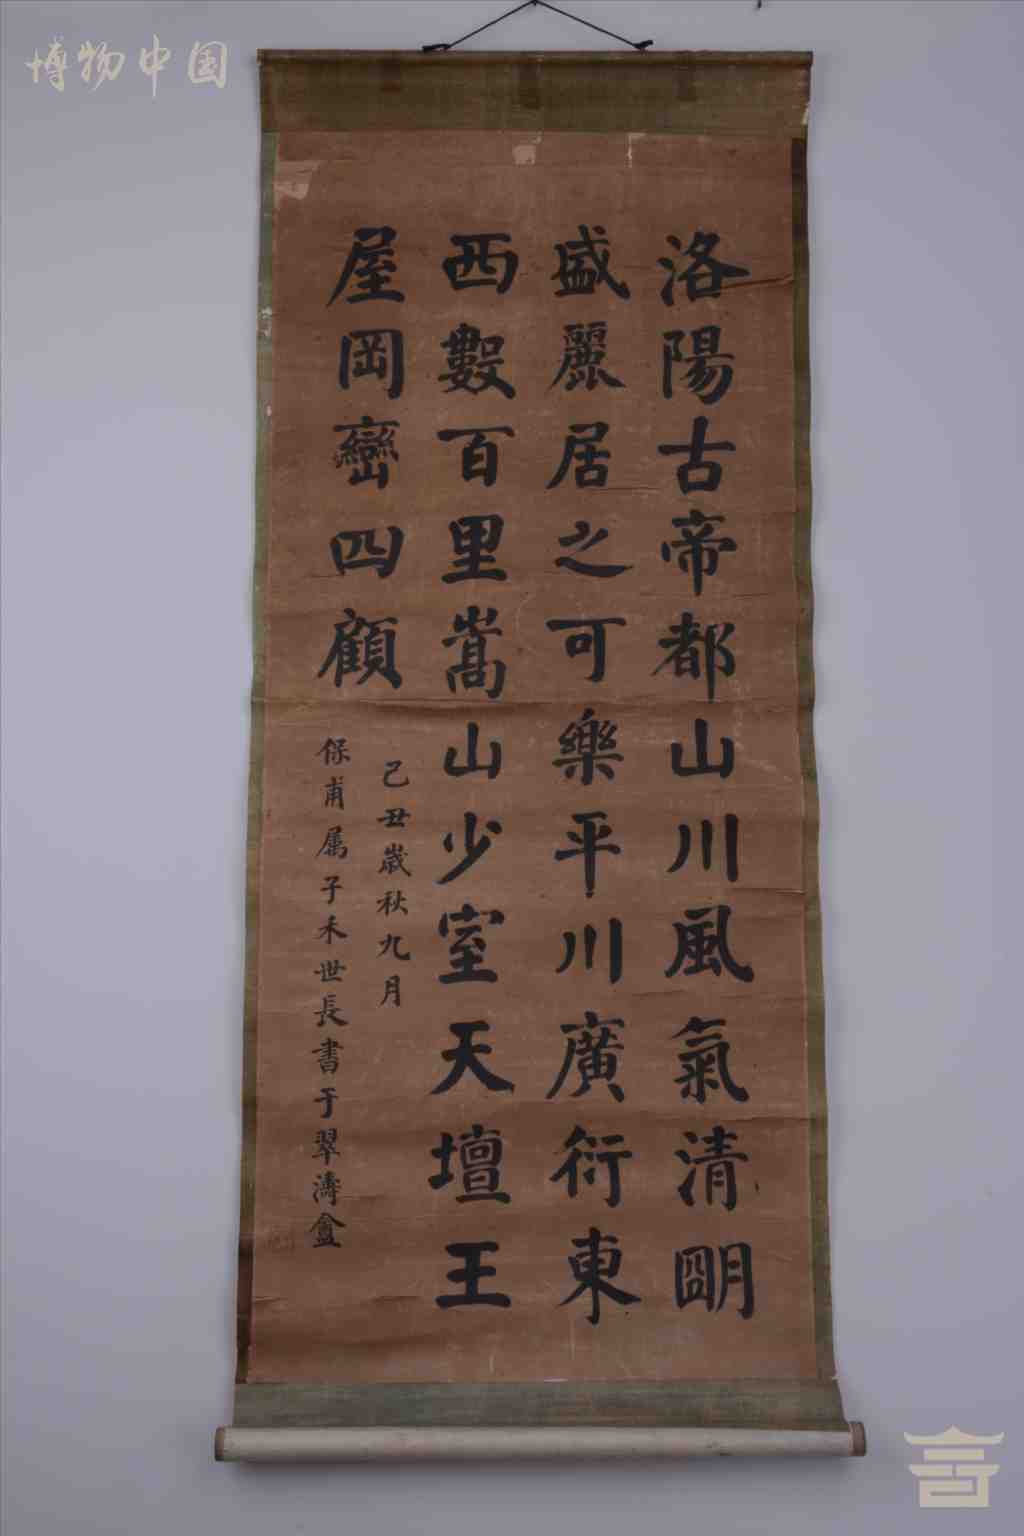 博物中国
洛陽古帝都山川風氣清明
盛麗居之可樂平川廣衍東
西數百里嵩山少室天壇王
屋岡巒四顧
己丑歲秋九月
保甫屬子禾世長書于翠濤盦